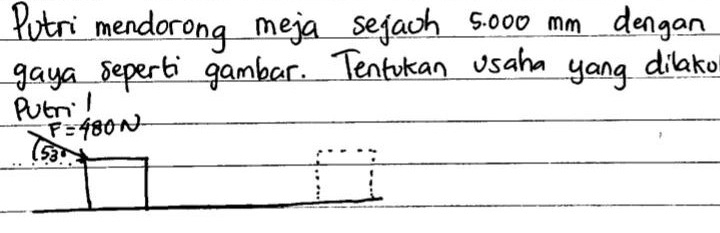 Putri mendorong meja sejaoh 5.000 mm dengan
gaya seperti gambar. Tentukan usaha yang dilaku
Putri!
F = 480 N
53°